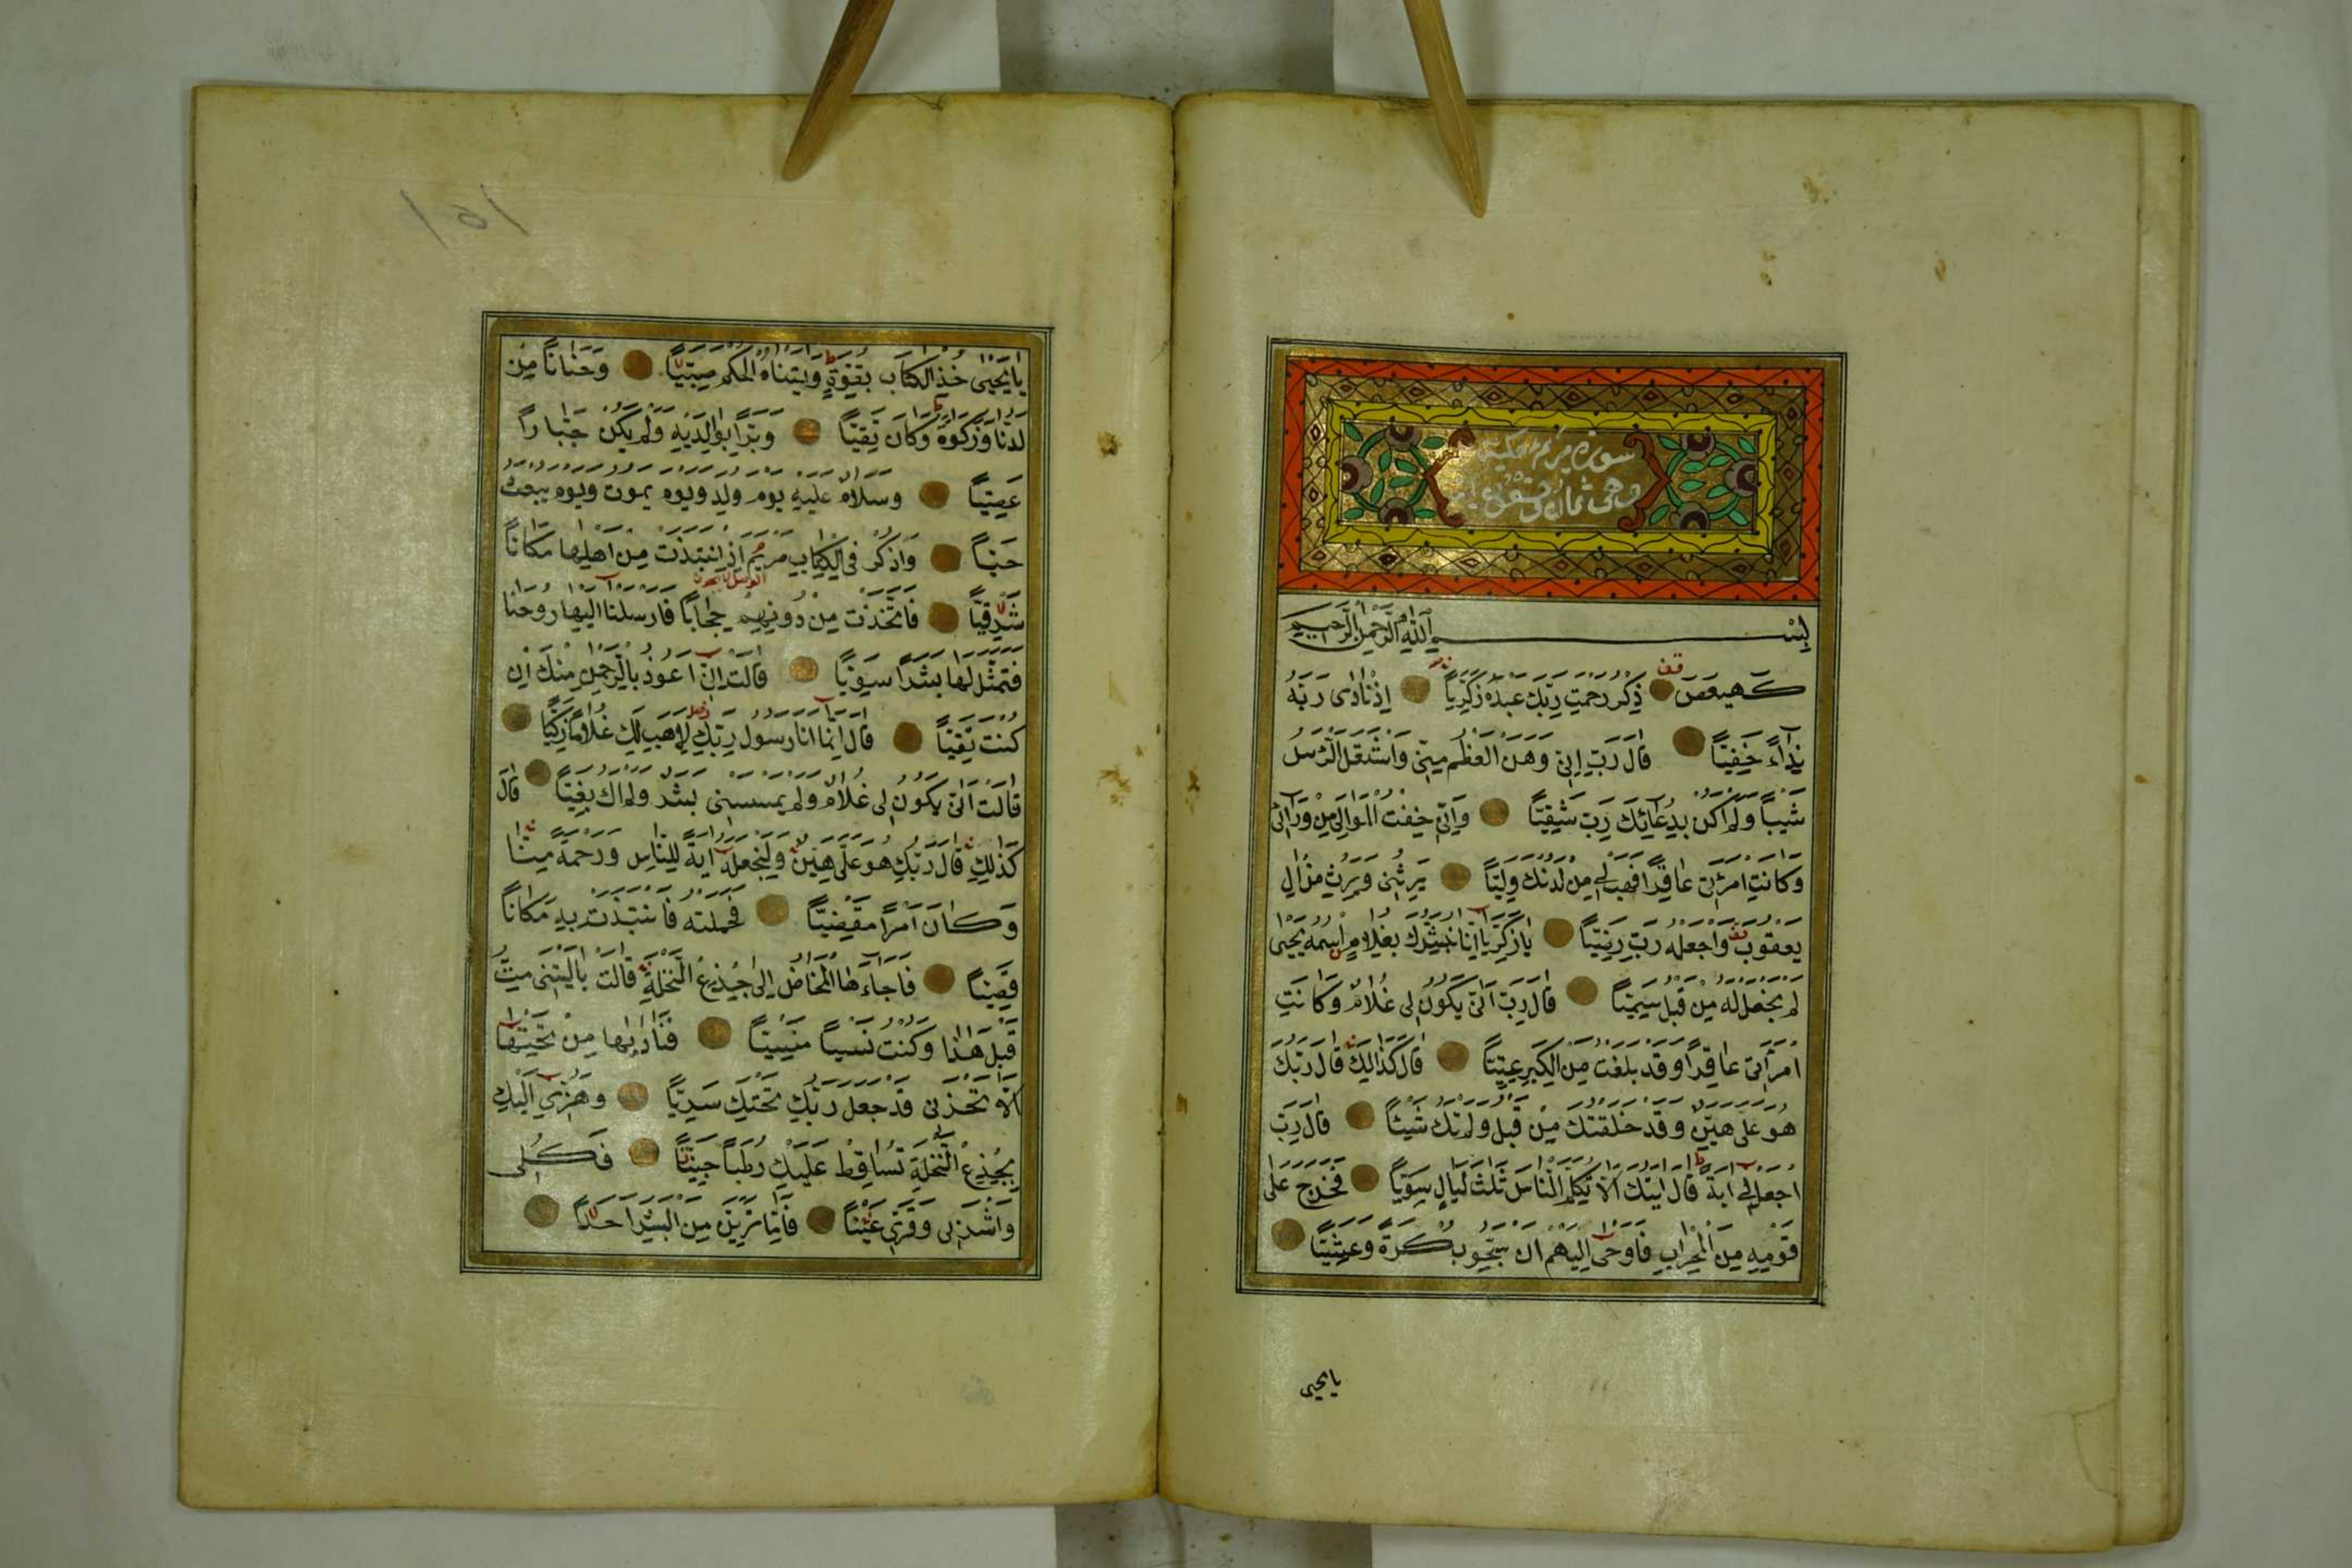 سورة مريم مكية
وهى ثمان وتسعون اية
بِسْــــــمِ اللّٰهِ الرَّحْمٰنِ الرَّحِيمِ
كَهيعص ذِكْرُ رَحْمَتِ رَبِّكَ عَبْدَهُ زَكَرِيَّا اِذْ نَادٰى رَبَّهُ
نِدَآءً خَفِيًّا قَالَ رَبِّ اِنّى وَهَنَ الْعَظْمُ مِنّى وَاشْتَعَلَ الرَّاْسُ
شَيْبًا وَلَمْ اَكُنْ بِدُعَائِكَ رَبِّ شَقِيًّا وَاِنّى خِفْتُ الْمَوَالِىَ مِنْ وَرَائى
وَكَانَتِ امْرَاَتى عَاقِرًا فَهَبْ لى مِنْ لَدُنْكَ وَلِيًّا يَرِثُنى وَيَرِثُ مِنْ اٰلِ
يَعْقُوبَ وَاجْعَلْهُ رَبِّ رَضِيًّا يَا زَكَرِيَّا اِنَّا نُبَشِّرُكَ بِغُلَامٍ اسْمُهُ يَحْيٰى
لَمْ نَجْعَلْ لَهُ مِنْ قَبْلُ سَمِيًّا قَالَ رَبِّ اَنّٰى يَكُونُ لى غُلَامٌ وَكَانَتِ
امْرَاَتى عَاقِرًا وَقَدْ بَلَغْتُ مِنَ الْكِبَرِ عِتِيًّا قَالَ كَذَالِكَ قَالَ رَبُّكَ
هُوَ عَلَىَّ هَيِّنٌ وَقَدْ خَلَقْتُكَ مِنْ قَبْلُ وَلَمْ تَكُ شَيْئًا قَالَ رَبِّ
اجْعَلْ لى اٰيَةً قَالَ اٰيَتُكَ اَلَّا تُكَلِّمَ النَّاسَ ثَلٰثَ لَيَالٍ سَوِيًّا فَخَرَجَ عَلٰى
قَوْمِهِ مِنَ الْمِحْرَابِ فَاَوْحٰى اِلَيْهِمْ اَنْ سَبِّحُوا بُكْرَةً وَعَشِيًّا
يايحيى
يَا يَحْيٰى خُذِ الْكِتَابَ بِقُوَّةٍ وَاٰتَيْنَاهُ الْحُكْمَ صَبِيًّا وَحَنَانًا مِنْ
لَدُنَّا وَزَكٰوةً وَكَانَ تَقِيًّا وَبَرًّا بِوَالِدَيْهِ وَلَمْ يَكُنْ جَبَّارًا
عَصِيًّا وَسَلَامٌ عَلَيْهِ يَوْمَ وُلِدَ وَيَوْمَ يَمُوتُ وَيَوْمَ يُبْعَثُ
حَيًّا وَاذْكُرْ فِى الْكِتَابِ مَرْيَمَ اِذِ انْتَبَذَتْ مِنْ اَهْلِهَا مَكَانًا
شَرْقِيًّا فَاتَّخَذَتْ مِنْ دُونِهِمْ حِجَابًا فَاَرْسَلْنَا اِلَيْهَا رُوحَنَا
فَتَمَثَّلَ لَهَا بَشَرًا سَوِيًّا قَالَتْ اِنّى اَعُوذُ بِالرَّحْمٰنِ مِنْكَ اِنْ
كُنْتَ تَقِيًّا قَالَ اِنَّمَا اَنَا رَسُولُ رَبِّكِ لِاَهَبَ لَكِ غُلَامًا زَكِيًّا
قَالَتْ اَنّٰى يَكُونُ لى غُلَامٌ وَلَمْ يَمْسَسْنى بَشَرٌ وَلَمْ اَكُ بَغِيًّا قَالَ
كَذٰلِكِ قَالَ رَبُّكِ هُوَ عَلَىَّ هَيِّنٌ وَلِنَجْعَلَهُ اٰيَةً لِلنَّاسِ وَرَحْمَةً مِنَّا
وَكَانَ اَمْرًا مَقْضِيًّا فَحَمَلَتْهُ فَانْتَبَذَتْ بِهِ مَكَانًا
قَصِيًّا فَاَجَاءَهَا الْمَخَاضُ اِلٰى جِذْعِ النَّخْلَةِ قَالَتْ يَا لَيْتَنى مِتُّ
قَبْلَ هٰذَا وَكُنْتُ نَسْيًا مَنْسِيًّا فَنَادٰيهَا مِنْ تَحْتِهَا
اَلَّا تَحْزَنى قَدْ جَعَلَ رَبُّكِ تَحْتَكِ سَرِيًّا وَهُزّى اِلَيْكِ
بِجِذْعِ النَّخْلَةِ تُسَاقِطْ عَلَيْكِ رُطَبًا جَنِيًّا فَكُلى
وَاشْرَبى وَقَرّى عَيْنًا فَاِمَّا تَرَيِنَّ مِنَ الْبَشَرِ اَحَدًا